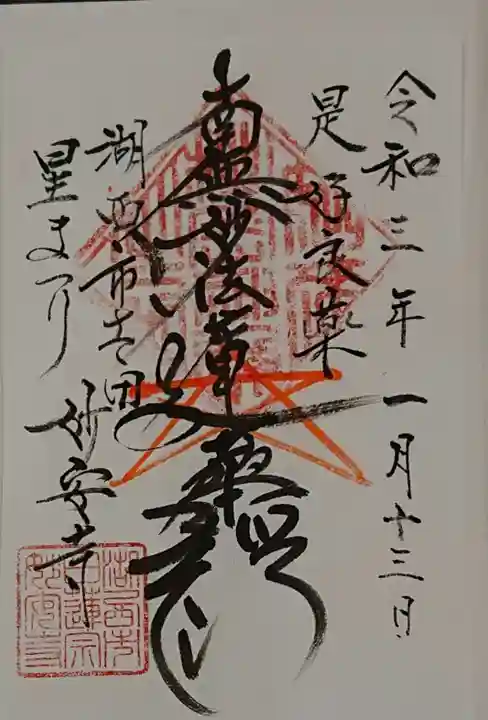 令和三年一月十三日
是好良薬
南無妙法蓮華経
湖西市吉田
妙安寺
星まつり
湖西市
日蓮宗
妙安寺